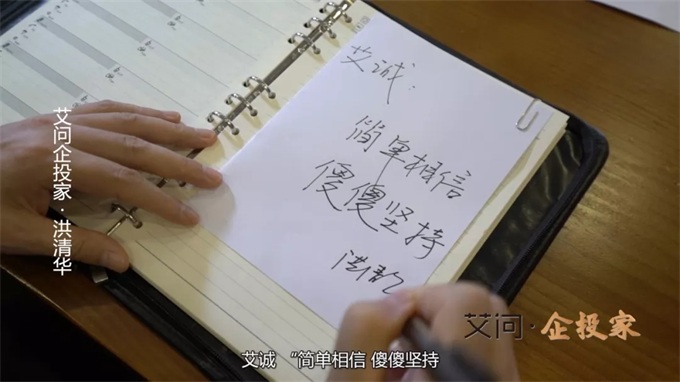 艾诚：
简单相信
傻傻坚持
艾问企投家·洪清华
艾问·企投家
艾诚 “简单相信 傻傻坚持